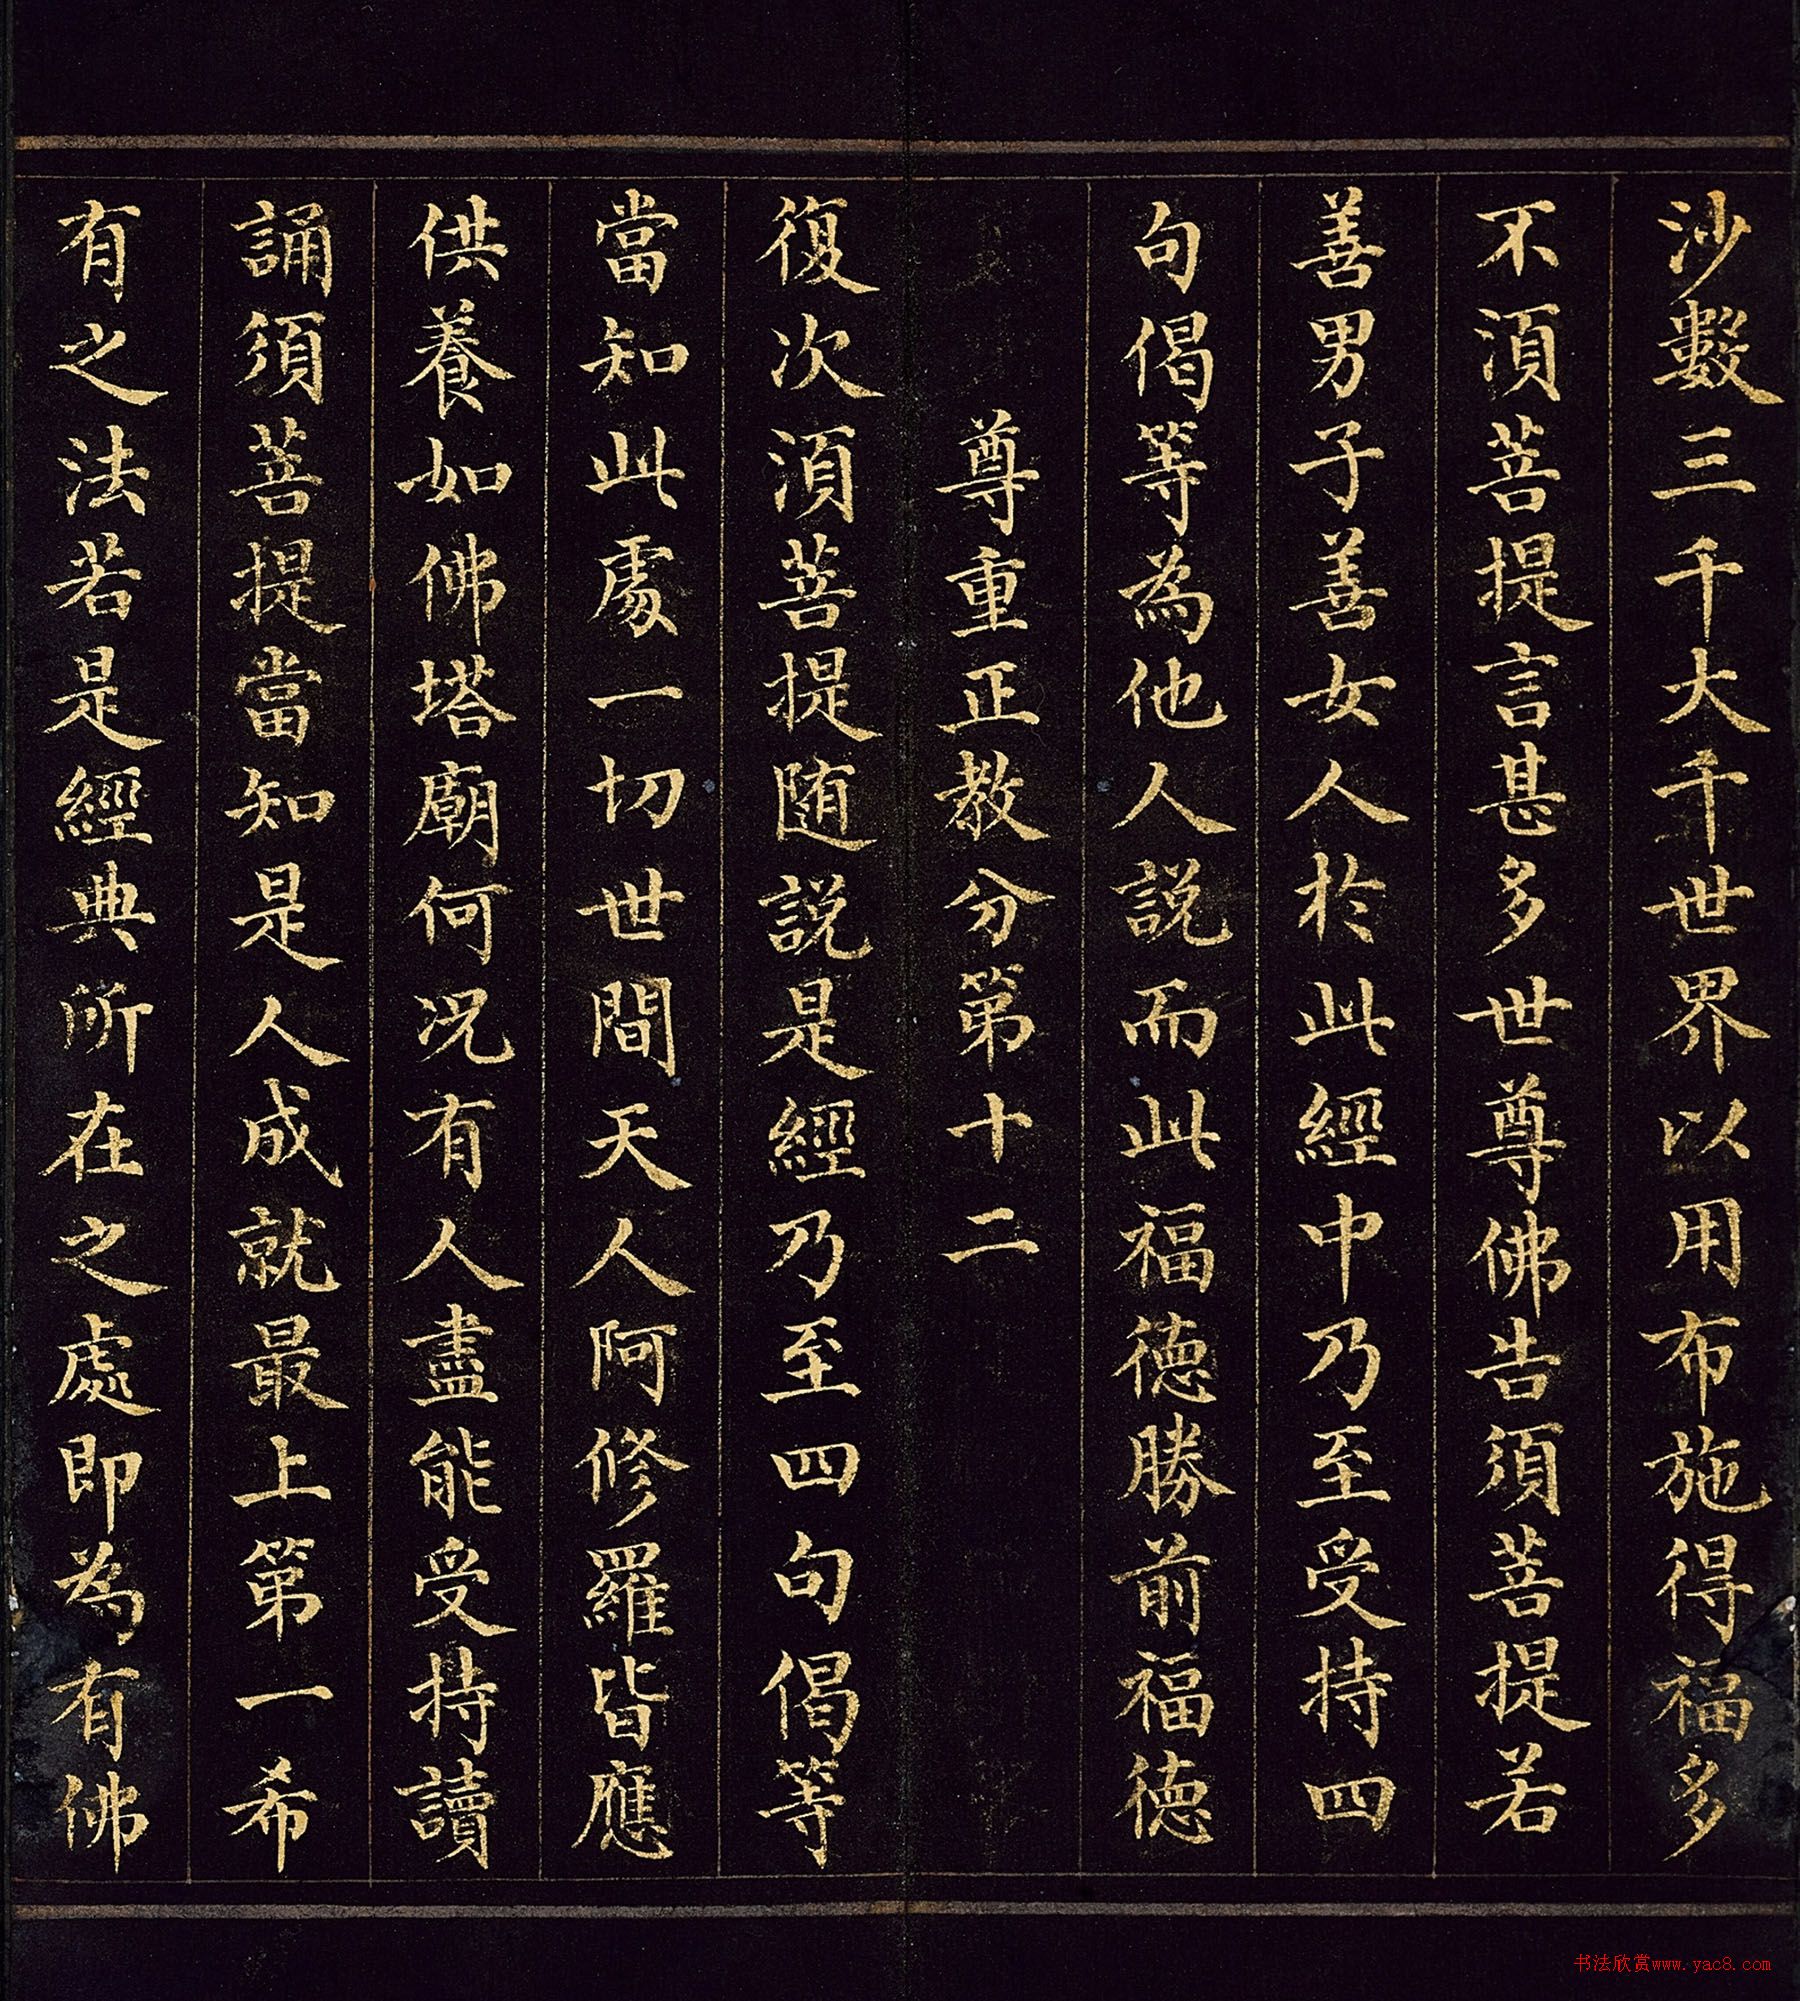 沙數三千大千世界以用布施得福多
不湏菩提言甚多世尊佛告須菩提若
善男子善女人於此經中乃至受持四
句偈等為他人説而此福德勝前福徳
尊重正教分第十二
復次湏菩提随説是經乃至四句偈等
當知此處一切世間天人阿修羅皆應
供養如佛塔廟何况有人盡能受持讀
誦須菩提當知是人成就最上第一希
有之法若是經典所在之處即為有佛
书法欣赏www.yac8.com